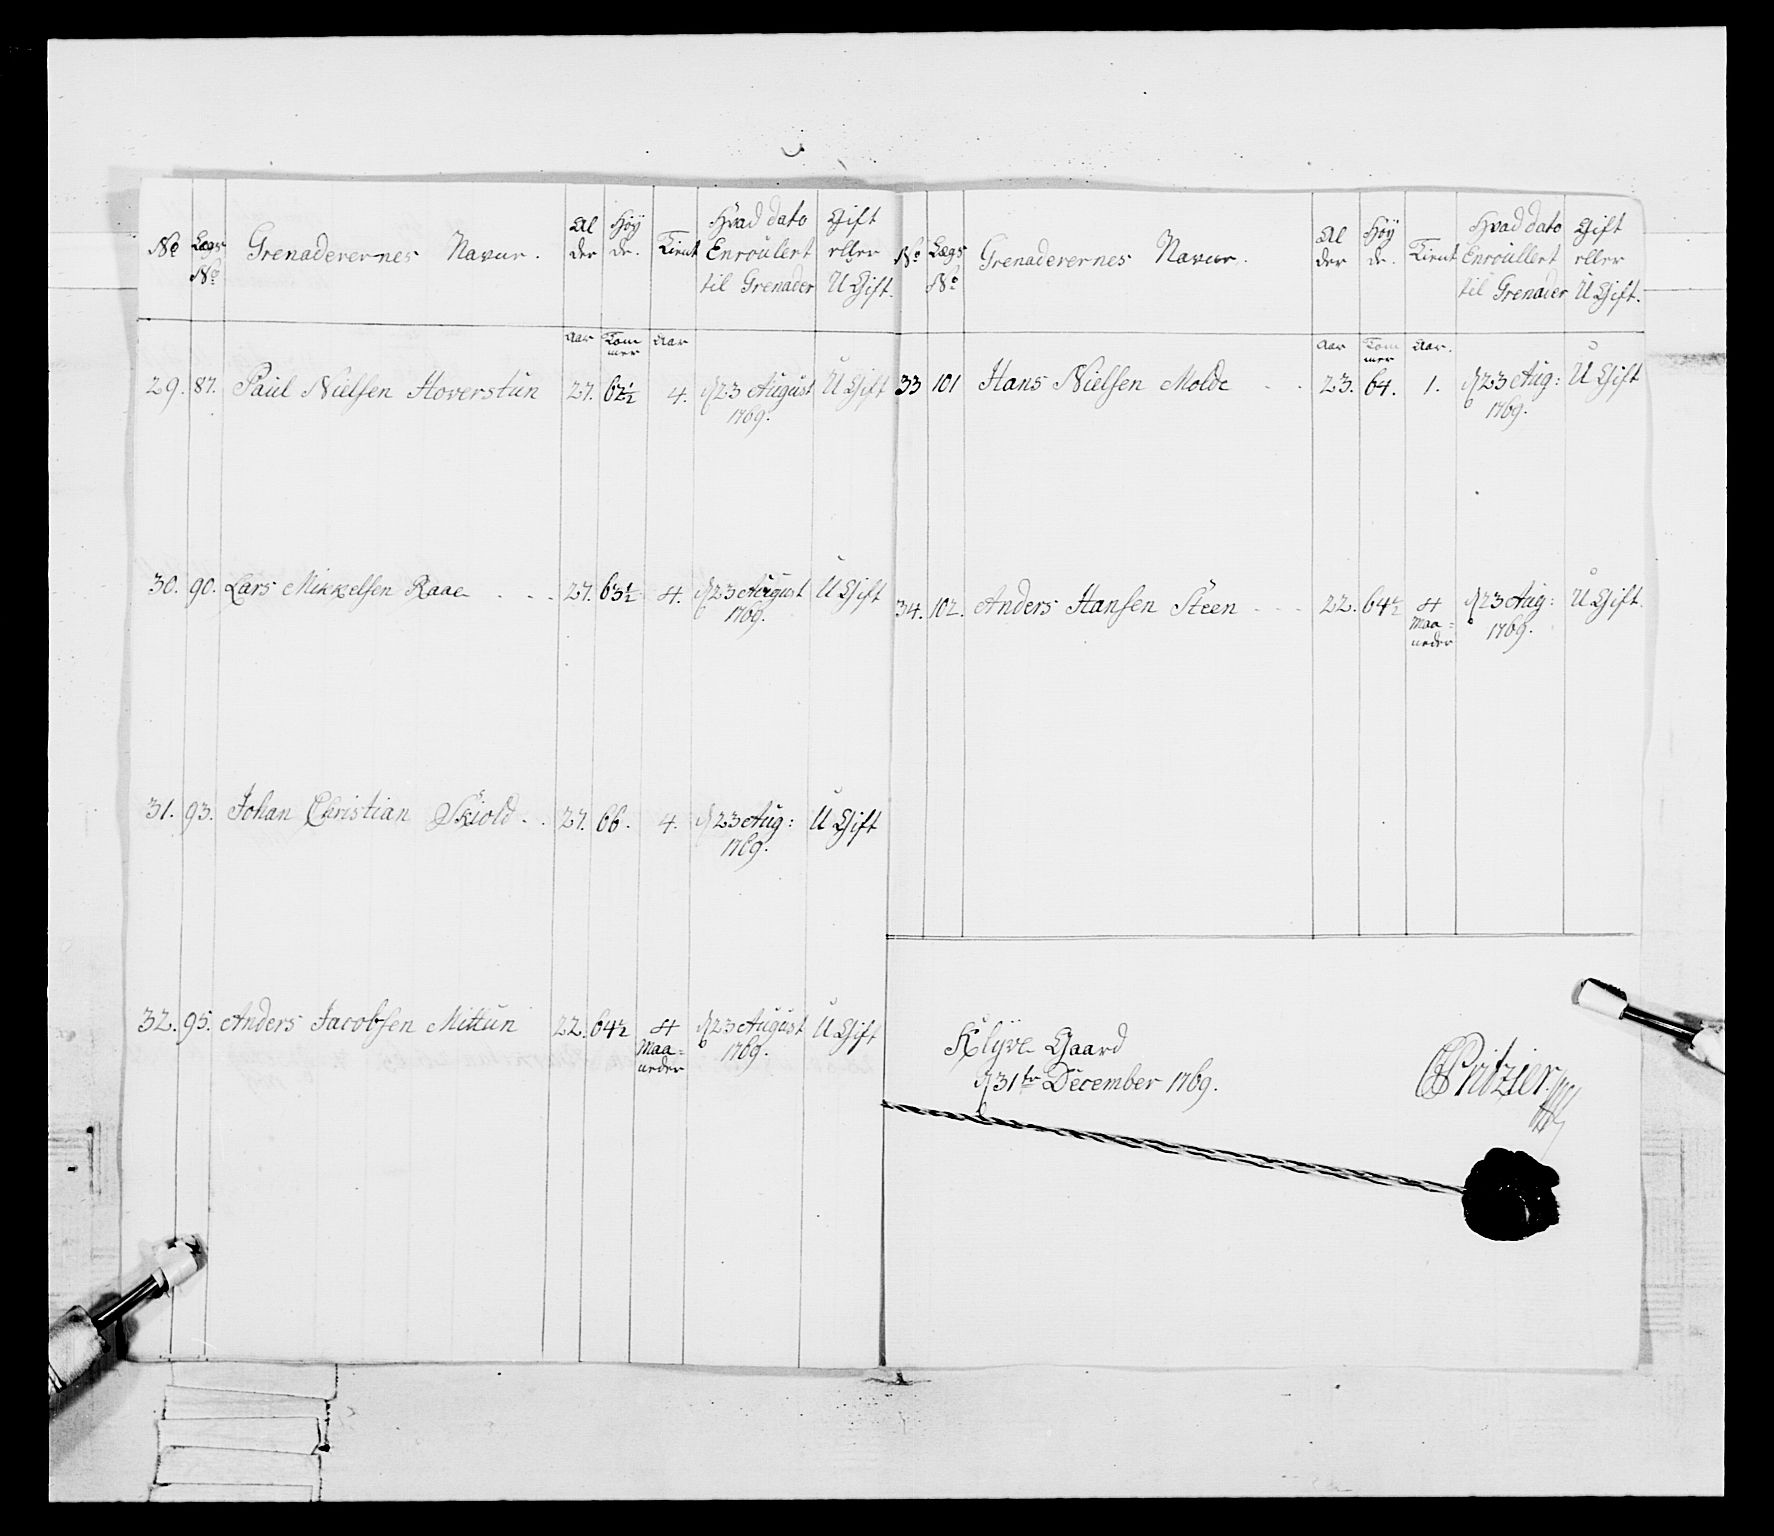 No Lægs No Grenaderernes Navne. Alder Høyde. Tient Hvad dato Enroulert til Grenader Gift eller U Gift.
Aar Tommer Aar
29. 87. Paul Nielsen Hoverstun 27. 62½ 4. d 23 August 1769. U Gift
30. 90. Lars Mikkelsen Raae 27. 63½ 4. d 23 August 1769. U Gift
31. 93. Johan Christian Skiold 27. 66. 4. d 23 Aug: 1769. U Gift
32. 95. Anders Jacobsen Mittun 22. 64½ 4 Maaneder d 23 August 1769. U Gift
No Lægs No Grenaderernes Navne. Alder Høyde. Tient Hvad dato Enroullert til Grenader Gift eller U Gift.
Aar Tommer Aar.
33 101 Hans Nielsen Molde 23. 64. 1. d 23 Aug: 1769. U Gift
34. 102. Anders Hansen Steen 22. 64½ 4 Maaneder d 23 Aug: 1769. U Gift.
Klyve Gaard
d 31te December 1769.